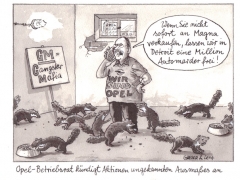 Wenn Sie nicht
sofort an Magna
verkaufen, lassen wir in
Detroit eine Million
Automarder frei!
GM =
Gangster
Mafia
WIR
OPEL
Opel-Betriebsrat kündigt Aktionen ungekannten Ausmaßes an